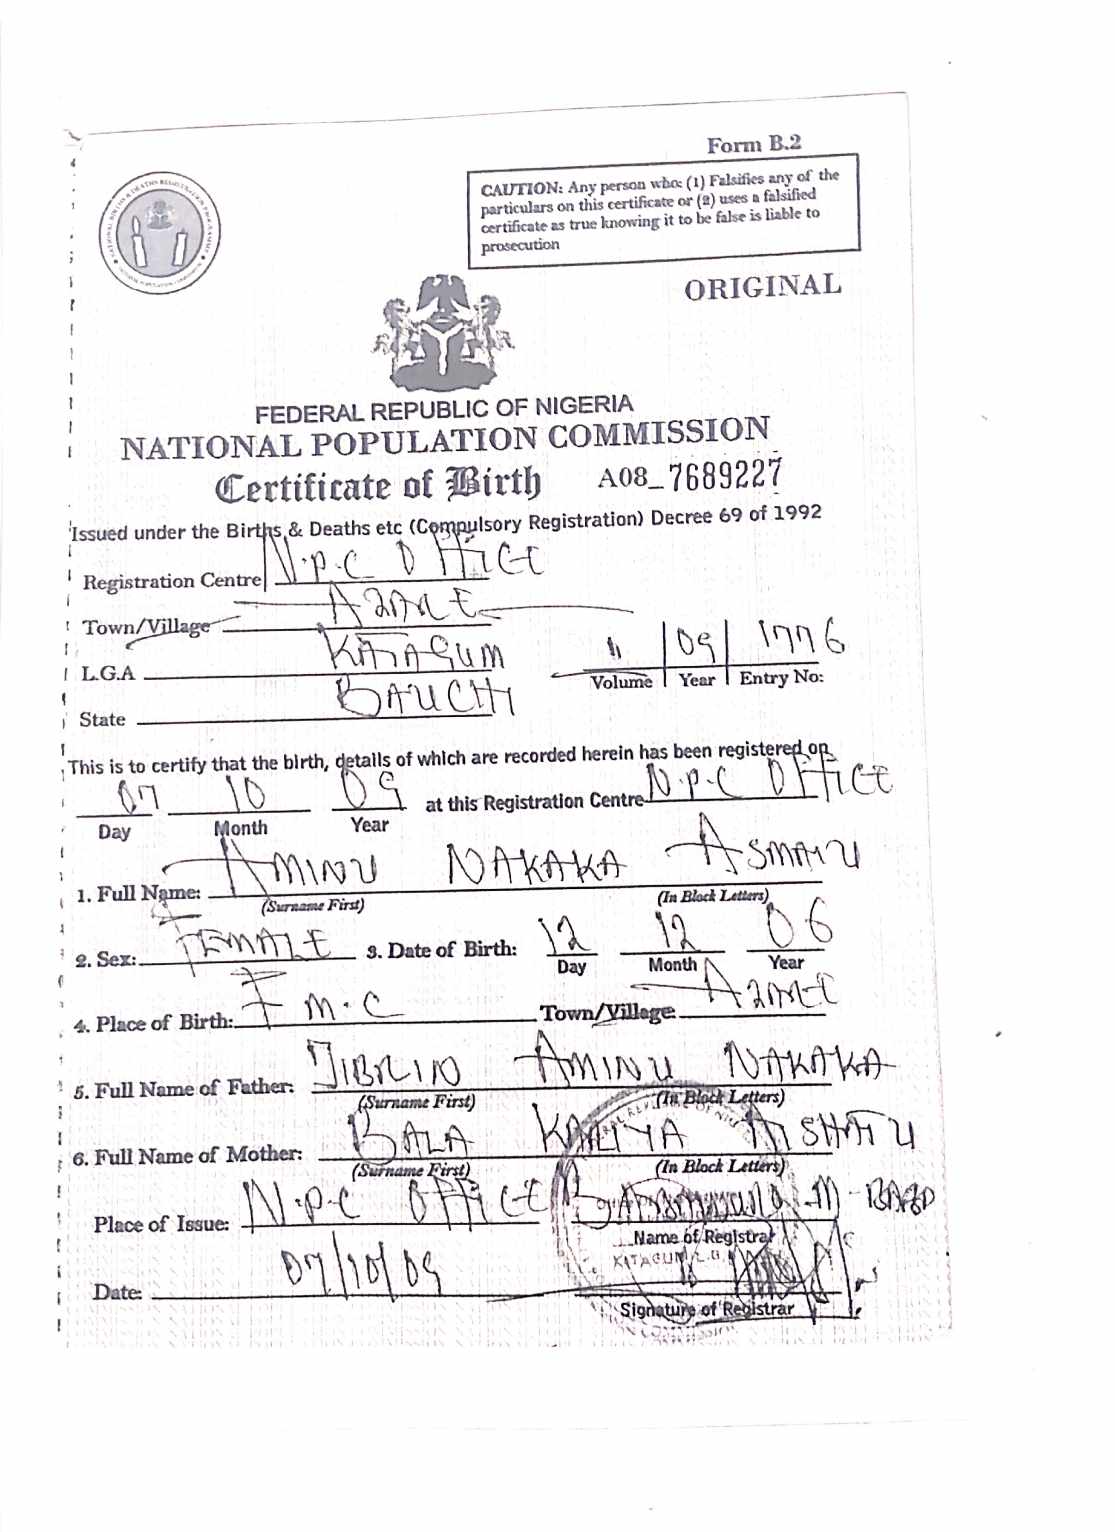 Form B.2
CAUTION: Any person who: (1) Falsifies any of the
particulars on this certificate or (2) uses a falsified
certificate as true knowing it to be false is liable to
prosecution
ORIGINAL
FEDERAL REPUBLIC OF NIGERIA
NATIONAL POPULATION COMMISSION
Certificate of Birth A08_7689227
Issued under the Births & Deaths etc (Compulsory Registration) Decree 69 of 1992
Registration Centre N.P.C OFFICE
Town/Village AZARE
L.G.A KATAGUM 11 09 1776
Volume Year Entry No:
State BAUCHI
This is to certify that the birth, details of which are recorded herein has been registered on
07 10 09 at this Registration Centre N.P.C OFFICE
Day Month Year
1. Full Name: AMINU NAKAKA ASMA'U
(Surname First) (In Block Letters)
2. Sex: FEMALE 3. Date of Birth: 12 12 06
Day Month Year
4. Place of Birth: F.M.C Town/Village AZARE
5. Full Name of Father: JIBRIN AMINU NAKAKA
(Surname First) (In Block Letters)
6. Full Name of Mother: BALA KALIYA
(Surname First) (In Block Letters)
Place of Issue: N.P.C OFFICE
Name of Registrar
KATAGUM L.G.
Date: 07/10/09
Signature of Registrar